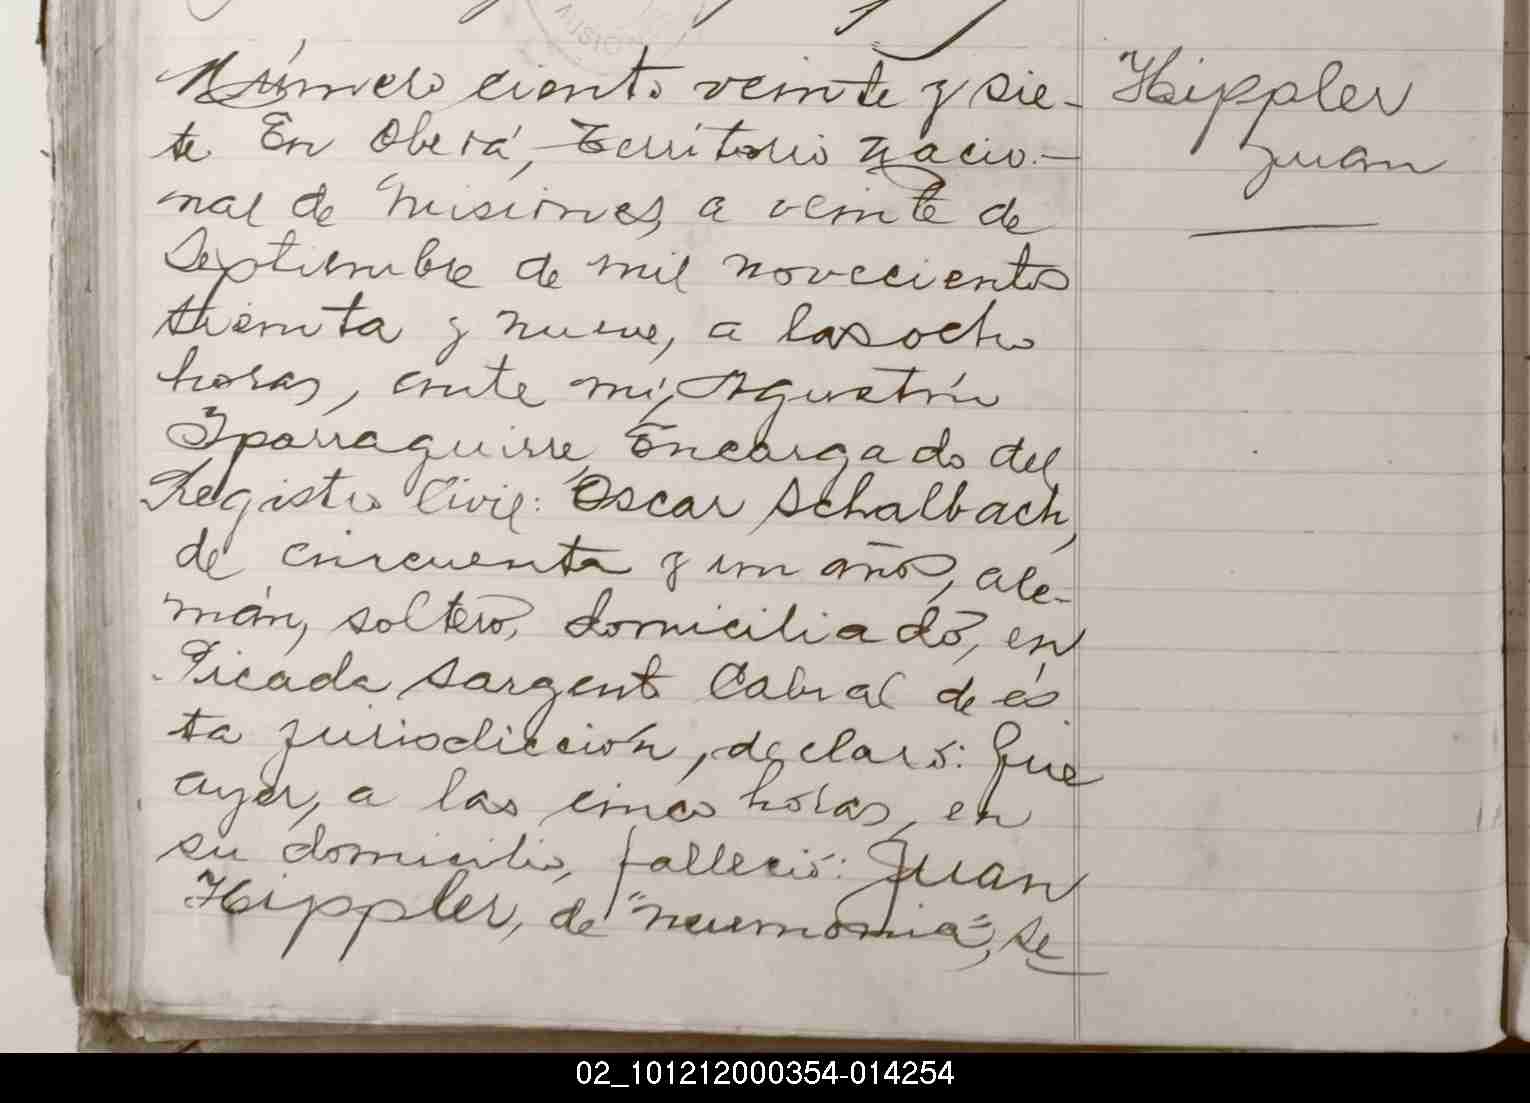 Número ciento veinte y sie-
te En Oberá, Territorio Nacio-
nal de Misiones, a veinte de
Septiembre de mil novecientos
treinta y nueve, a las ocho
horas, ante mí, Agustín
Iparraguirre, Encargado del
Registro Civil: Oscar Schalbach,
de cincuenta y un años, ale-
mán, soltero, domiciliado, en
Picada Sargento Cabral de és
ta jurisdicción, declaró: Que
ayer, a las cinco horas, en
su domicilio, falleció: Juan
Hippler, de "neumonia", se
Hippler
Juan
02_101212000354-014254